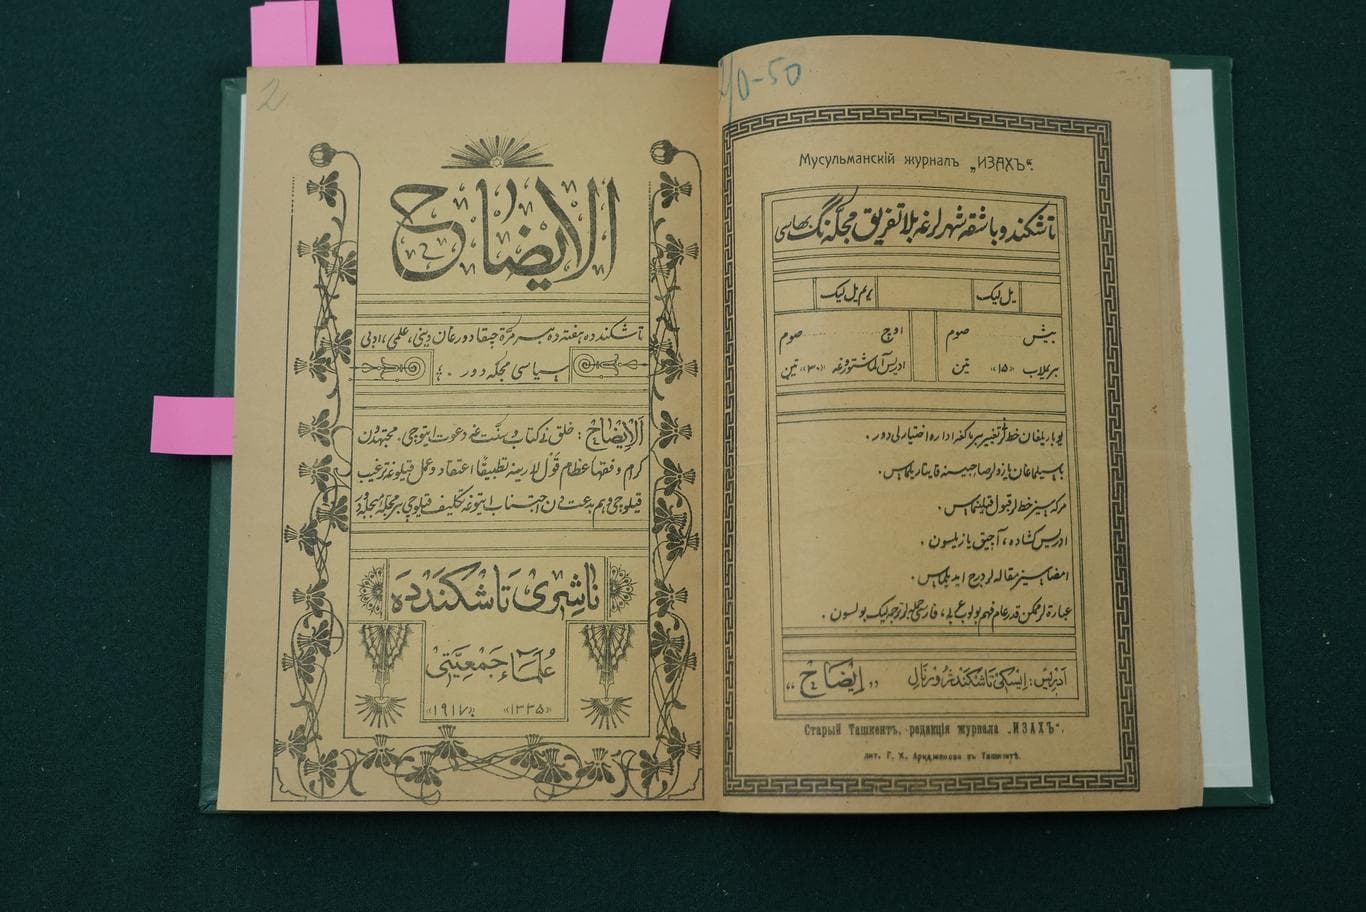 2
الایضاح
تاشکندده هفته ده بر مرّة چیقادورغان دینی، علمی، ادبی
سیاسی مجله دور .
اَلاِیْضَاحْ : خلق نی کتاب و سنّت غه دعوت ایتوجی، مجتهدن
کرام و فقهاء عظام قول لاریغه تطبیقًا اعتقاد و عمل قیلوغه ترغیب
قیلوجی و هم بدعت دن اجتناب ایتوغه تکلیف قیلوجی بر مجله
ناشری تاشکندده
عُلَمَاءْ جَمعِیَّتی
«۱۳۳۵» «۱۹۱۷»
40-50
Мусульманскій журналъ „ИЗАХЪ“.
تاشکند و باشقه شهرلرغه بلا تفریق مجله نگ بهاسی
یل لیک
یریم یل لیک
بیش صوم
اوچ صوم
«۱۵» تین
ادریس آلماشتورغه «۳۰» تین
اداره اختیارلی دور .
باسیلماغان یازولر صاحبینه قایتاریلمس .
مرکه سیز خط لر قبول قیلنمس .
ادریس کشاده، آچیق یازیلسون .
امضاسیز مقاله لر درج ایدیلمس .
عبارة لر ممکن قدر عام فهم بولوب، فارسی جمله لر ترجمه لیک بولسون .
آدریس: ایسکی تاشکند ژورنال „ایضاح“
Старый Ташкентъ, редакція журнала „ИЗАХЪ“.
лит. Г. Х. Арифджанова въ Ташкентѣ.